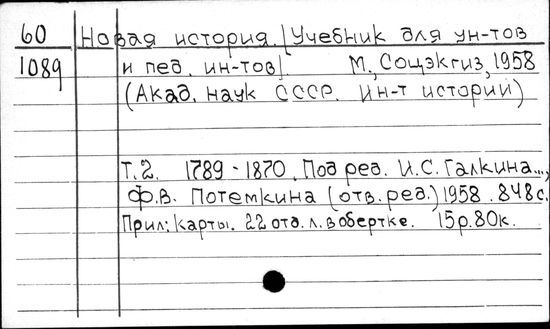 60 Новая история. [Учебник для ун-тов
1089 и пед. ин-тов] М., Соцэкгиз, 1958
(Акад. наук СССР. Ин-т истории)
Т.2. 1789-1870. Под ред. И.С. Галкина...,
Ф.В. Потемкина (отв. ред.) 1958. 848 с.
Прил: Карты. 22 отд. л. в обертке. 15р. 80к.